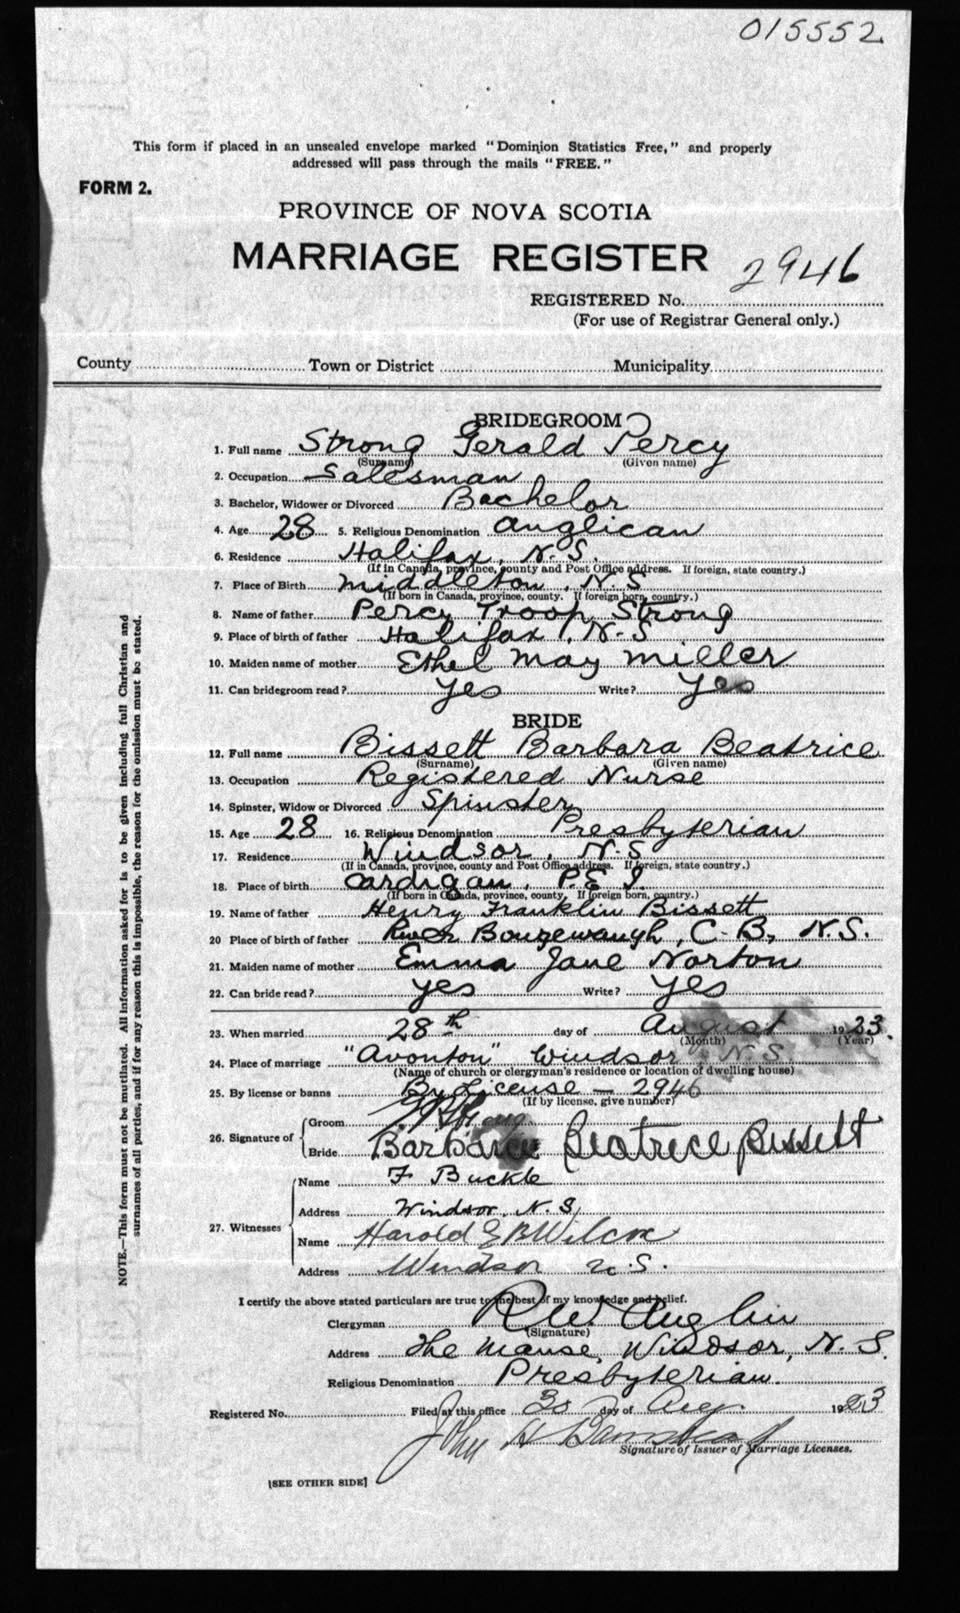 015552
This form if placed in an unsealed envelope marked "Dominion Statistics Free," and properly
addressed will pass through the mails "FREE."
FORM 2.
PROVINCE OF NOVA SCOTIA
MARRIAGE REGISTER
REGISTERED No. 2946
(For use of Registrar General only.)
County Town or District Municipality
BRIDEGROOM
1. Full name Strong Gerald Percy
(Surname) (Given name)
2. Occupation Salesman
3. Bachelor, Widower or Divorced Bachelor
4. Age 28 5. Religious Denomination Anglican
6. Residence Halifax, N.S.
(If in Canada, province, county and Post Office address. If foreign, state country.)
7. Place of Birth Middleton, N.S
(If born in Canada, province, county. If foreign born, country.)
8. Name of father Percy Troop Strong
9. Place of birth of father Halifax, N.S
10. Maiden name of mother Ethel May Miller
11. Can bridegroom read? Yes Write? Yes
BRIDE
12. Full name Bissett Barbara Beatrice
(Surname) (Given name)
13. Occupation Registered Nurse
14. Spinster, Widow or Divorced Spinster
15. Age 28 16. Religious Denomination Presbyterian
17. Residence Windsor, N.S
(If in Canada, province, county and Post Office address. If foreign, state country.)
18. Place of birth Cardigan, P.E.I.
(If born in Canada, province, county. If foreign born, country.)
19. Name of father Henry Franklin Bissett
20 Place of birth of father River Bougewaugh, C.B, N.S.
21. Maiden name of mother Emma Jane Norton
22. Can bride read? Yes Write? Yes
23. When married 28th day of August 1923.
(Month) (Year)
24. Place of marriage "Avonton" Windsor, N.S.
(Name of church or clergyman's residence or location of dwelling house)
25. By license or banns By License - 2946
(If by license, give number)
26. Signature of Groom
Bride Barbara Beatrice Bissett
27. Witnesses
Name F Buckle
Address Windsor, N.S,
Name Harold E B Wilcox
Address Windsor N.S.
I certify the above stated particulars are true to the best of my knowledge and belief.
Clergyman R W Anglin
(Signature)
Address The Manse, Windsor, N.S.
Religious Denomination Presbyterian.
Registered No. Filed at this office 30 day of Aug. 1923
John H
Signature of Issuer of Marriage Licenses.
[SEE OTHER SIDE]
NOTE.—This form must not be mutilated. All information asked for is to be given including full Christian and
surnames of all parties, and if for any reason this is impossible, the reason for the omission must be stated.